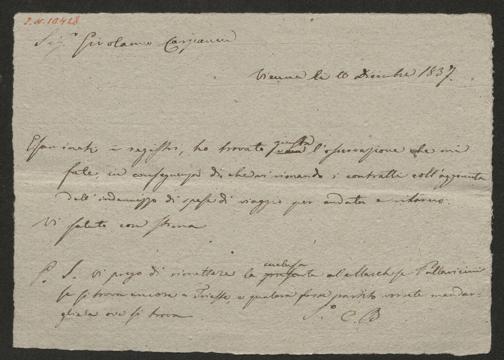 I.N. 10428
Sig.r Girolamo Carpanin
Vienna li 10 Dicembre 1837.
Esaminati i registri, ho trovato giusta l'osservazione che mi
fate, in conseguenza di che vi rimando i contratti coll'aggiunta
dell'indennizzo di spese di viaggio per andata e ritorno.
Vi saluto con stima
P. S. Vi prego di rimettere la inclusa al Marchese Pallavicini
se si trova ancora a Trieste, o qualora fosse partito vorrete mandar-
gliela ove si trova
C. B